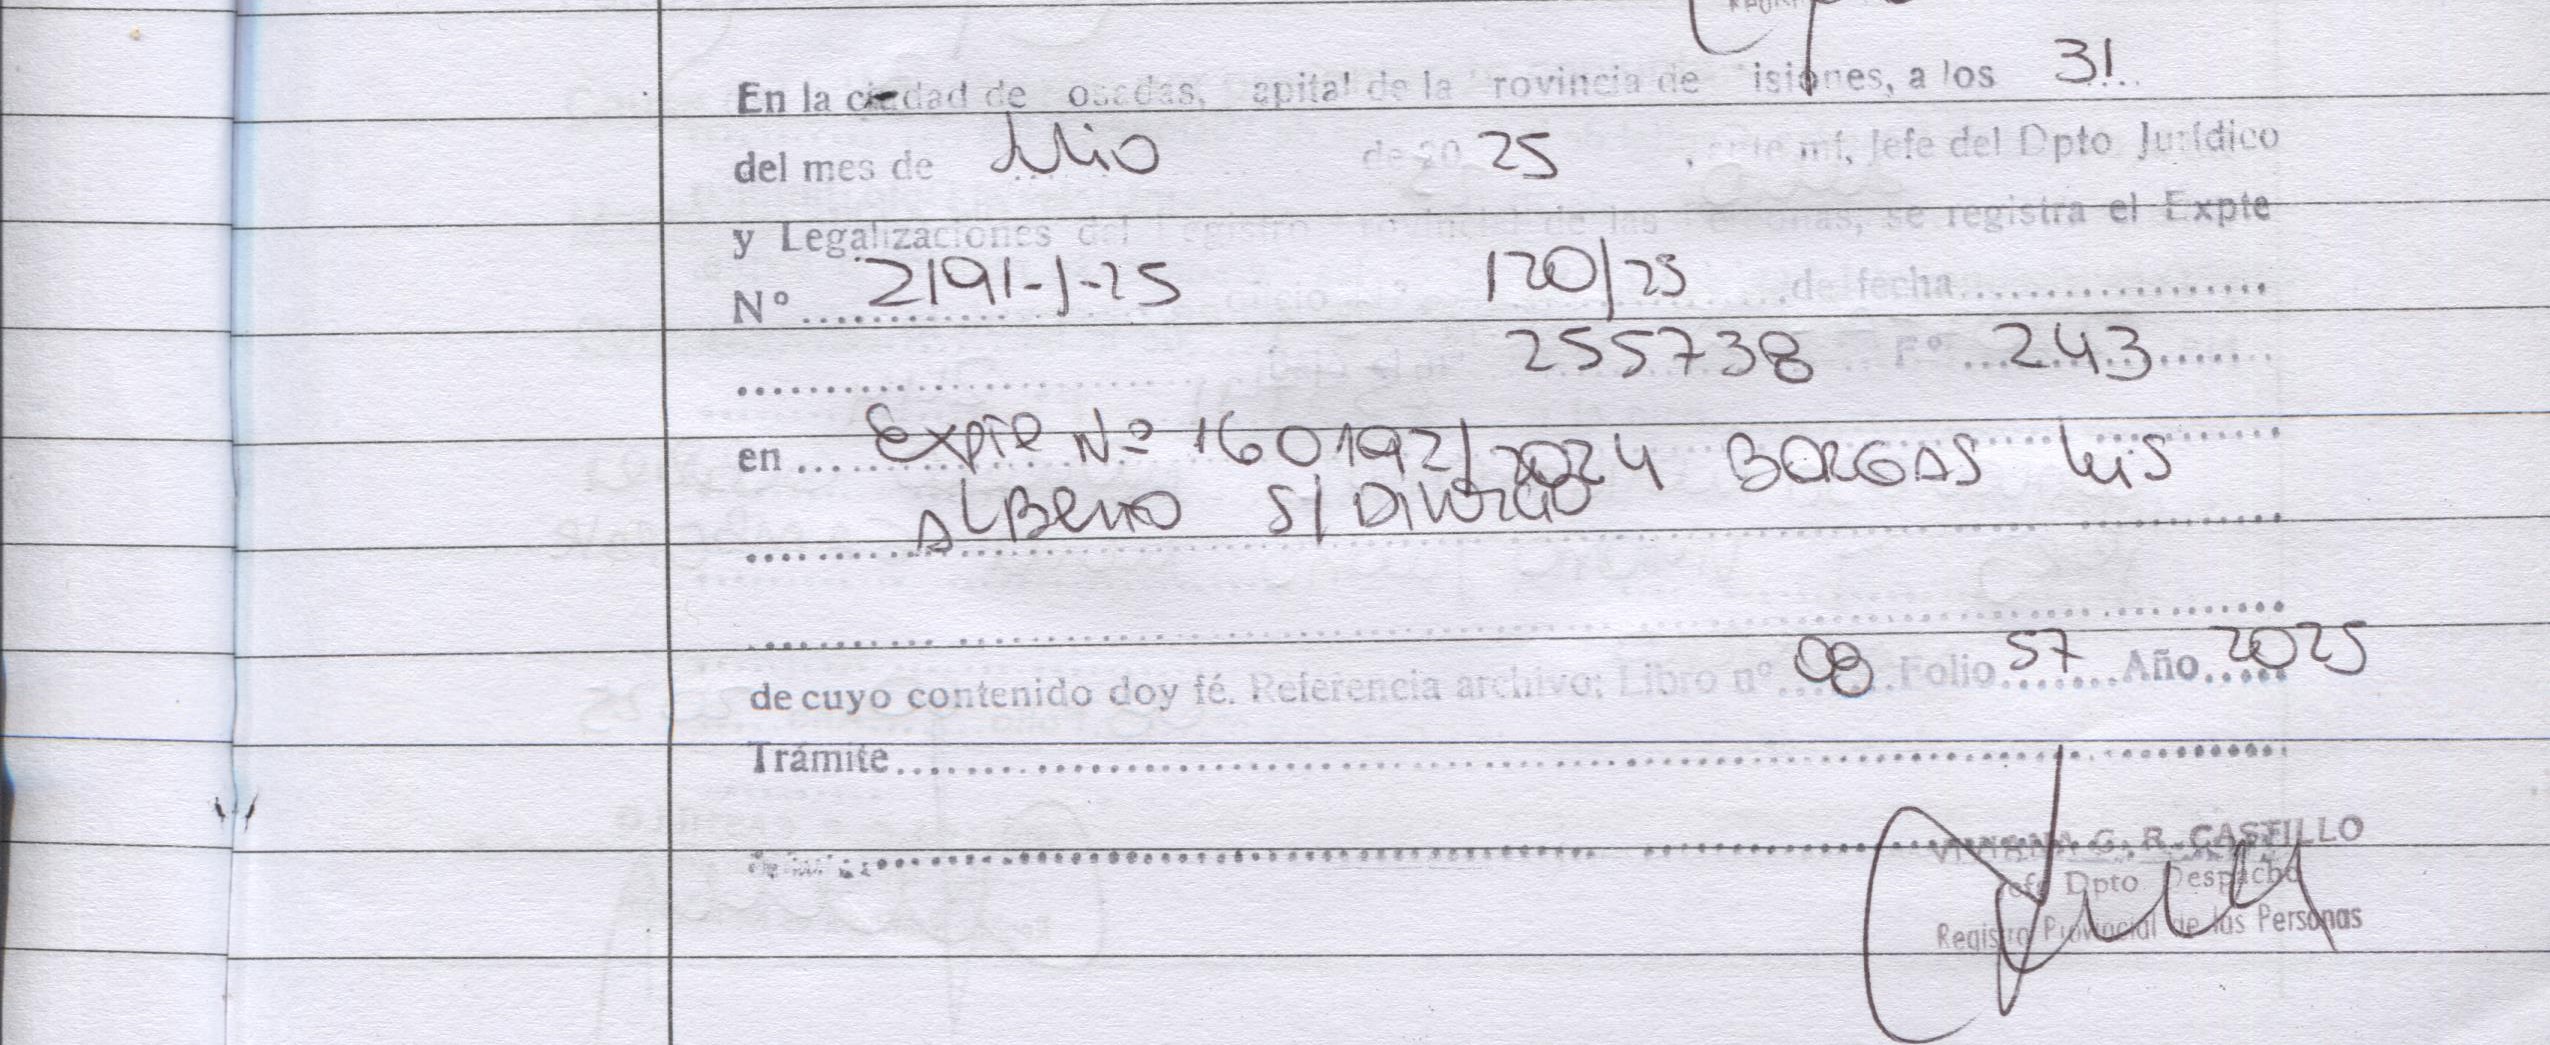 En la ciudad de osadas, apital de la rovincia de isiones, a los 31
del mes de Julio de 20 25, ante mí, Jefe del Dpto Jurídico
y Legalizaciones del Registro rovincial de las ersonas, se registra el Expte
Nº 2191-J-25 oficio nº 120/25 de fecha
255738 Fº 243
en Expte Nº 160192/2024 BORGAS Luis
ALBERTO S/ DIVORCIO
de cuyo contenido doy fé. Referencia archivo: Libro nº 08 Folio 57 Año 2025
Trámite
VIVIANA G. R. CASTILLO
Jefe Dpto Despacho
Registro Provincial de las Personas